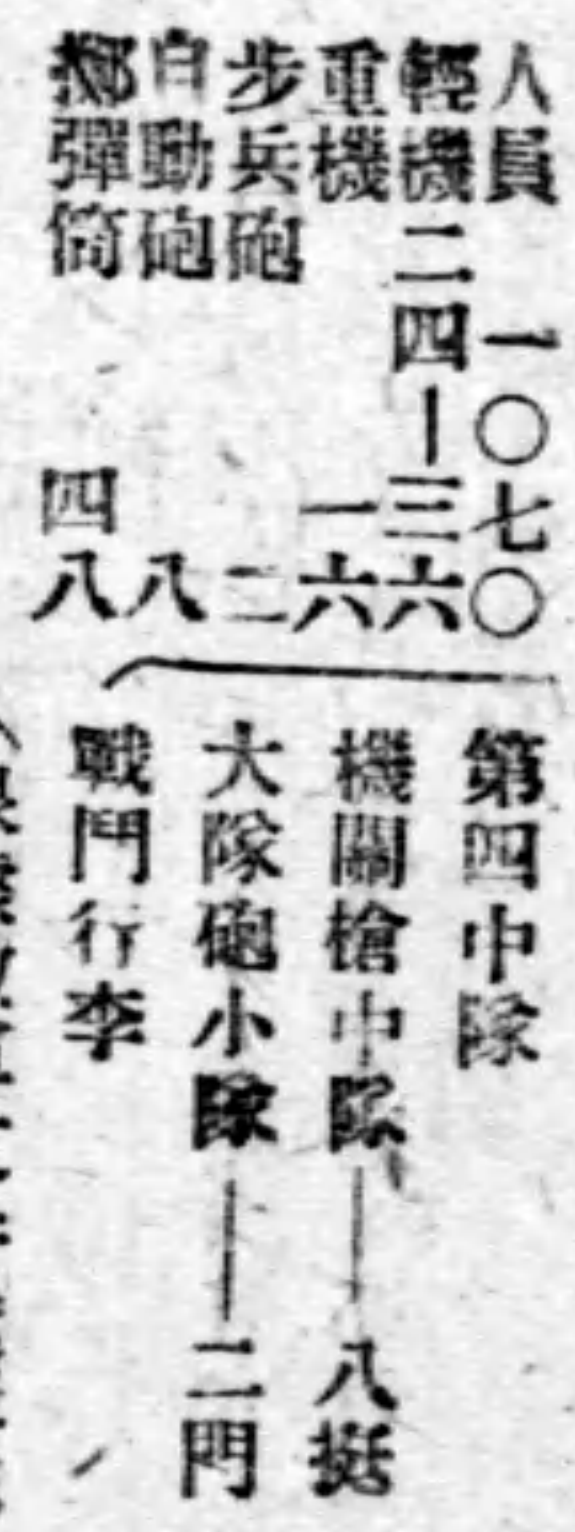 人員 一〇七〇
輕機 二四—三六
重機 一六
步兵砲 二
自動砲 八
擲彈筒 四八
第四中隊
機關槍中隊——八挺
大隊砲小隊——二門
戰鬥行李